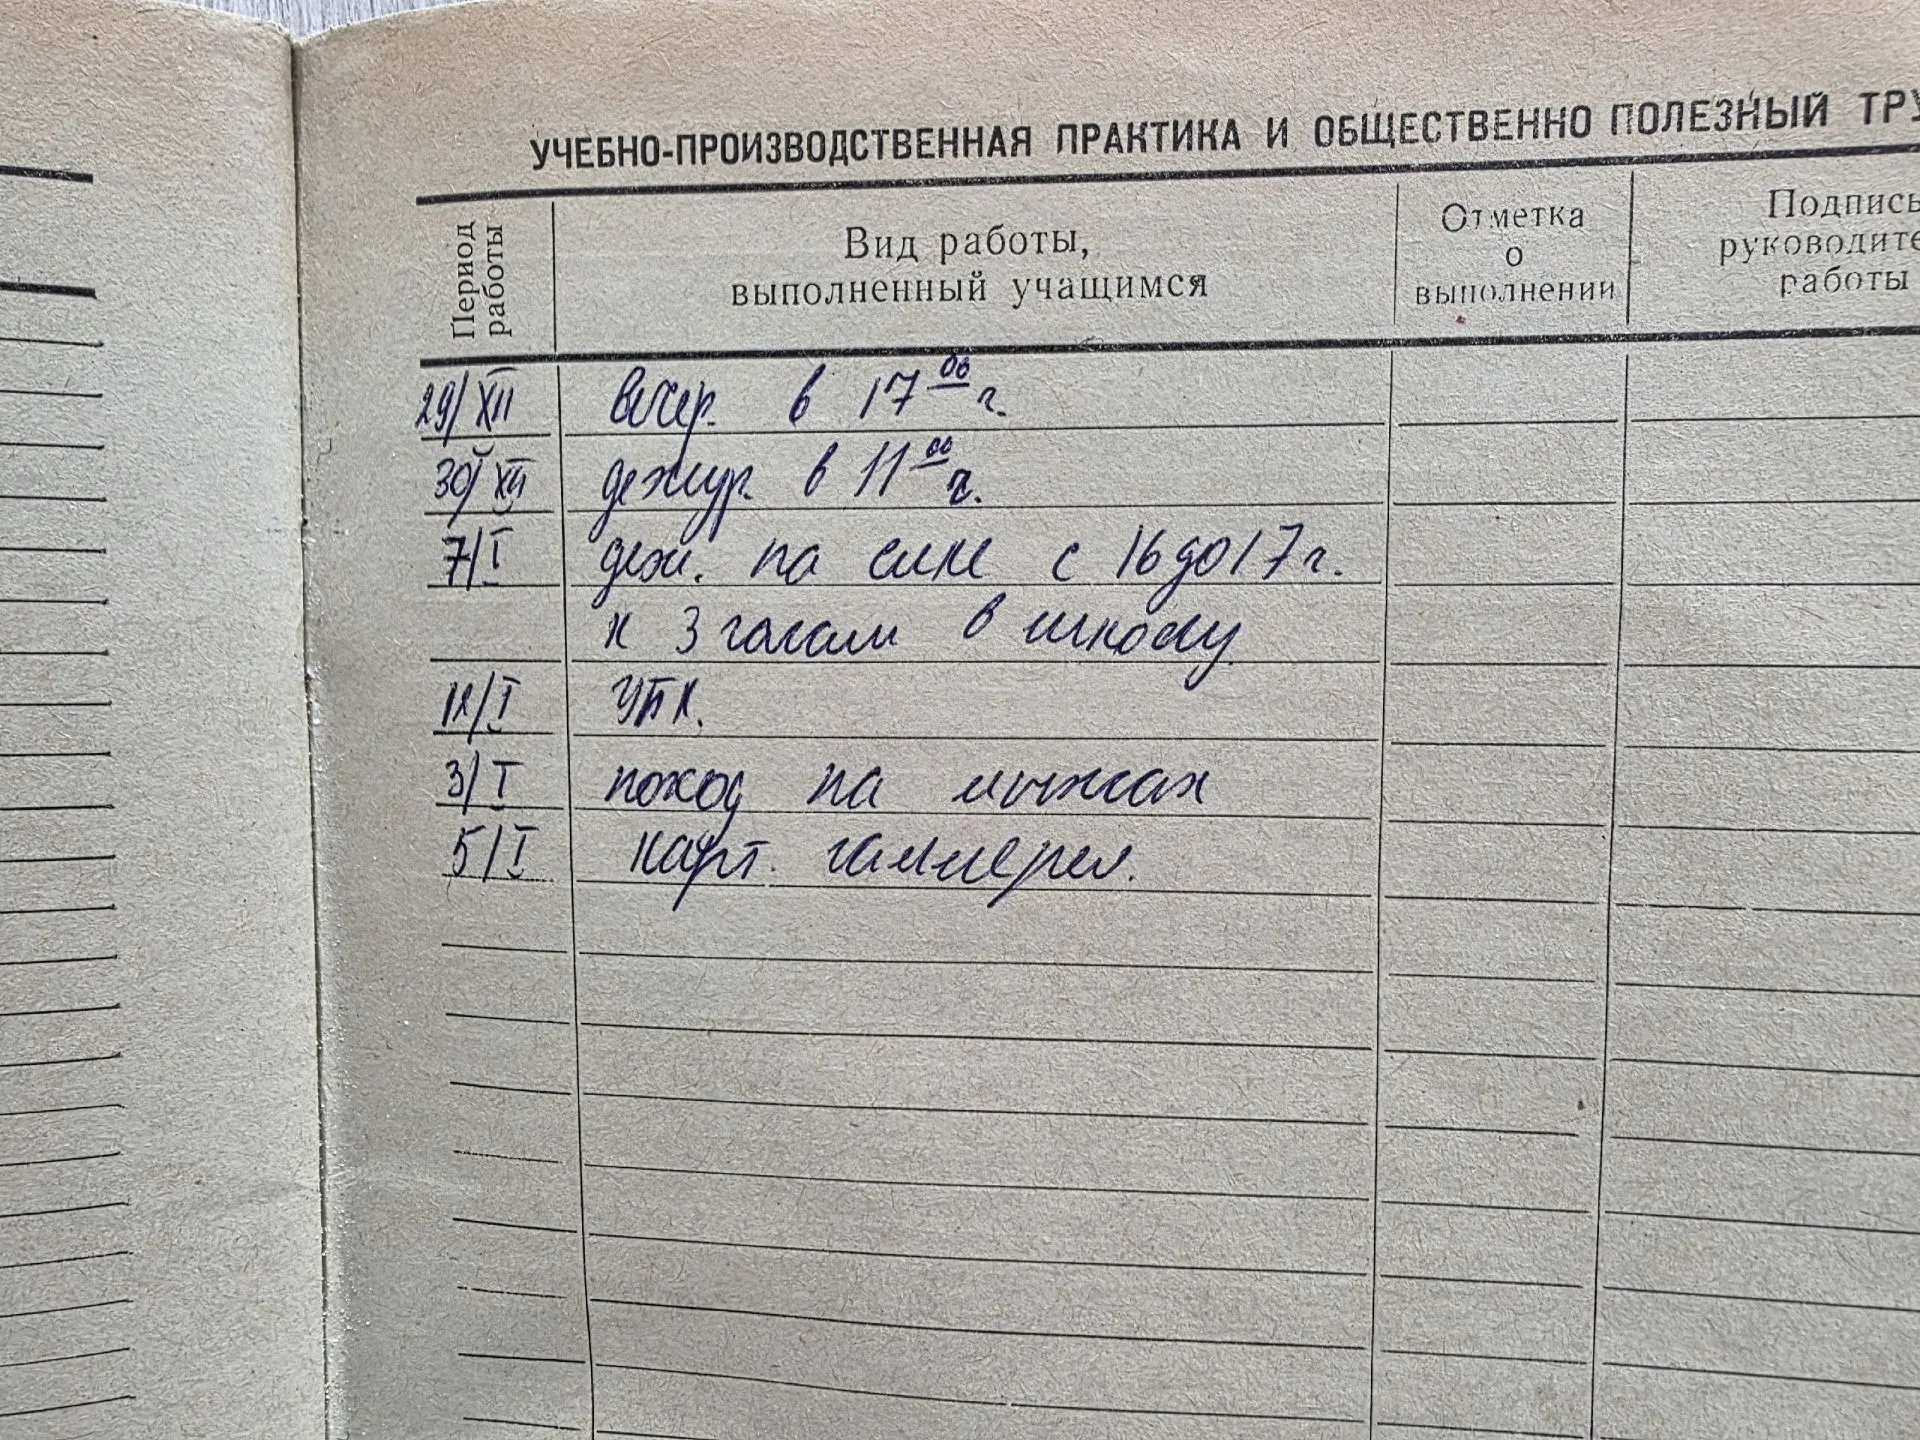 УЧЕБНО-ПРОИЗВОДСТВЕННАЯ ПРАКТИКА И ОБЩЕСТВЕННО ПОЛЕЗНЫЙ ТРУ
Период работы
Вид работы,
выполненный учащимся
Отметка
о
выполнении
Подпись
руководите
работы
29/XII вечер в 17 00 ч.
30/XII дежур. в 11 00 ч.
7/I деж. на елке с 16 до 17 ч.
к 3 часам в школу
12/I УПК.
3/I поход на лыжах
5/I карт. галлерея.